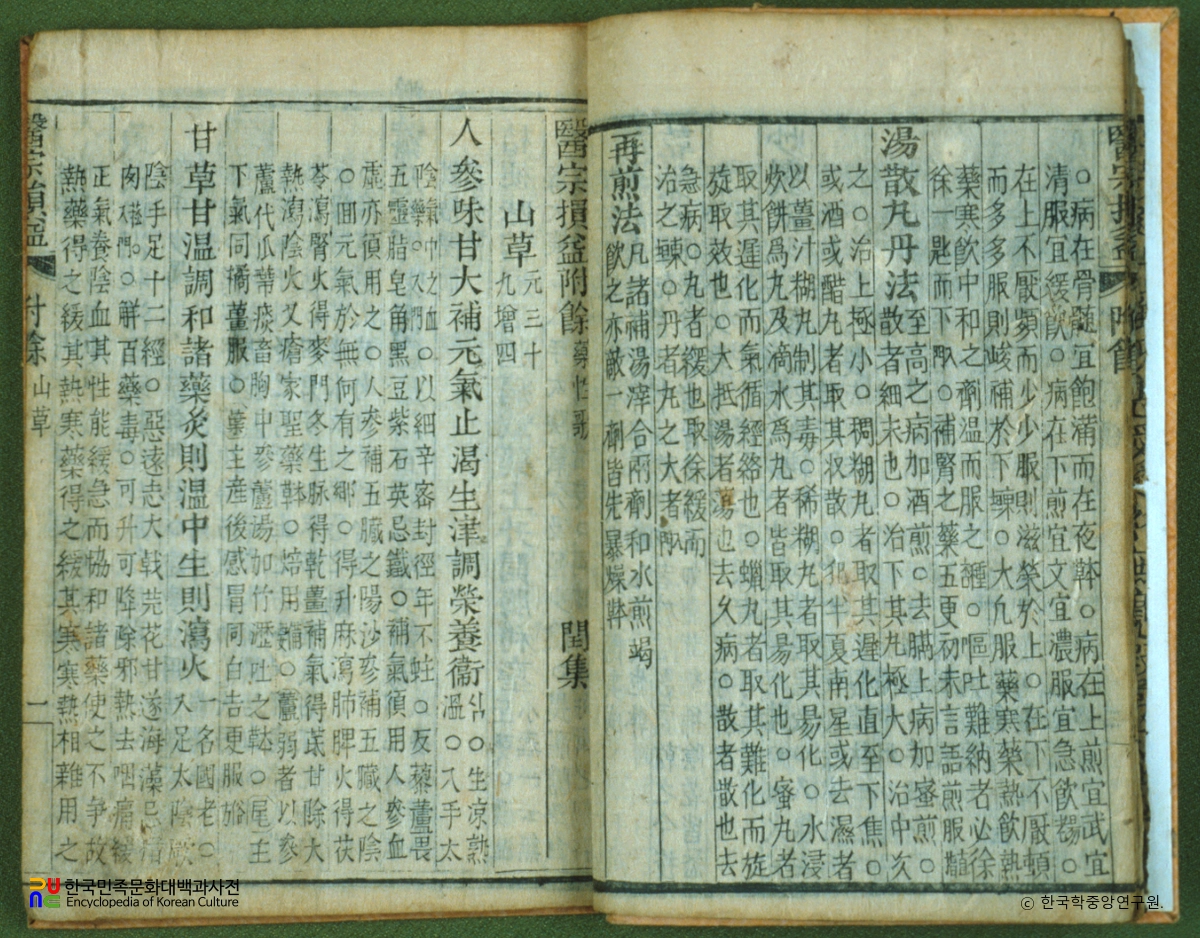 醫宗損益 附餘
○病在骨髓宜飽滿而在夜○病在上煎宜武宜
清服宜緩飮○病在下煎宜文宜濃服宜急飮○
在上不厭頻而少少服則滋榮於上○在下不厭頓
而多多服則峻補於下○大凡服藥寒藥熱飮熱
藥寒飮中和之劑温而服之○嘔吐難納者必徐
徐一匙而下○補腎之藥五更初未言語煎服
湯散丸丹法 至高之病加酒煎○去膈上病加蜜煎○
散者細末也○治下其丸極大○治中次
之○治上極小○稠糊丸者取其遅化直至下焦○
或酒或醋丸者取其收散○犯半夏南星或去濕者
以薑汁糊丸制其毒○稀糊丸者取其易化○水浸
炊餠爲丸及滴水爲丸者皆取其易化也○蜜丸者
取其遅化而氣循經絡也○蠟丸者取其難化而旋
旋取效也○大抵湯者蕩也去久病○散者散也去
急病○丸者緩也取徐緩而
治之○丹者丸之大者
再煎法 凡諸補湯滓合兩劑和水煎竭
飮之亦敵一劑皆先暴燥
醫宗損益附餘 藥性歌 閏集
山草 元三十
九增四
人參味甘大補元氣止渴生津調榮養衞 ○生涼熟
溫○入手太
陰氣中之血○以細辛密封徑年不蛀○反藜蘆畏
五靈脂皂角黑豆紫石英忌鐵○補氣須用人參血
虛亦須用之○人參補五臟之陽沙參補五臟之陰
○回元氣於無何有之鄕○得升麻瀉肺脾火得茯
苓瀉腎火得麥門冬生脉得乾薑補氣得芪甘除大
熱瀉陰火又瘡家聖藥○焙用○蘆弱者以參
蘆代瓜蒂痰畜胸中參蘆湯加竹瀝吐之○尾主
下氣同橘薑服○主産後感冒同白吉更服
甘草甘温調和諸藥炙則温中生則瀉火 一名國老○
入足太陰厥
陰手足十二經○惡遠志大戟芫花甘遂海藻忌
○解百藥毒○可升可降除邪熱去咽痛緩
正氣養陰血其性能緩急而協和諸藥使之不爭故
熱藥得之緩其熱寒藥得之緩其寒寒熱相雜用之
醫宗損益 付餘 山草 一
한국민족문화대백과사전
Encyclopedia of Korean Culture
ⓒ 한국학중앙연구원.